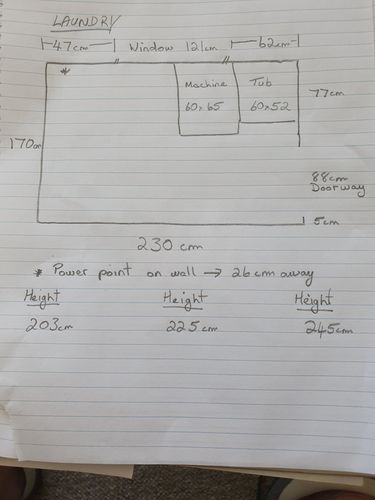 LAUNDRY
47cm Window 121cm 62cm
*
Machine Tub
60x65 60x52
77cm
170cm
88cm
Doorway
5cm
230 cm
* Power point on wall → 26cm away
Height Height Height
203cm 225cm 245cm